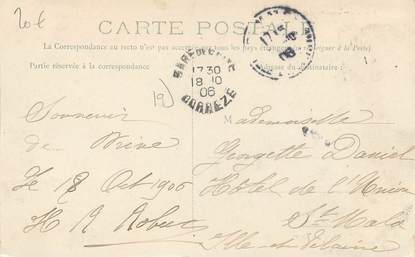 20€
CARTE POSTALE
La Correspondance au recto n'est pas acceptée par tous les pays étrangers
Partie réservée à la correspondance
Adresse du Destinataire
GARE DE BRIVE
17 30
18 - 10
06
CORREZE
19
Souvenir
de Brive
Le 18 Oct 1906
Mademoiselle
Georgette Daniel
Hôtel de l'Union
St Malo
Ille et Vilaine